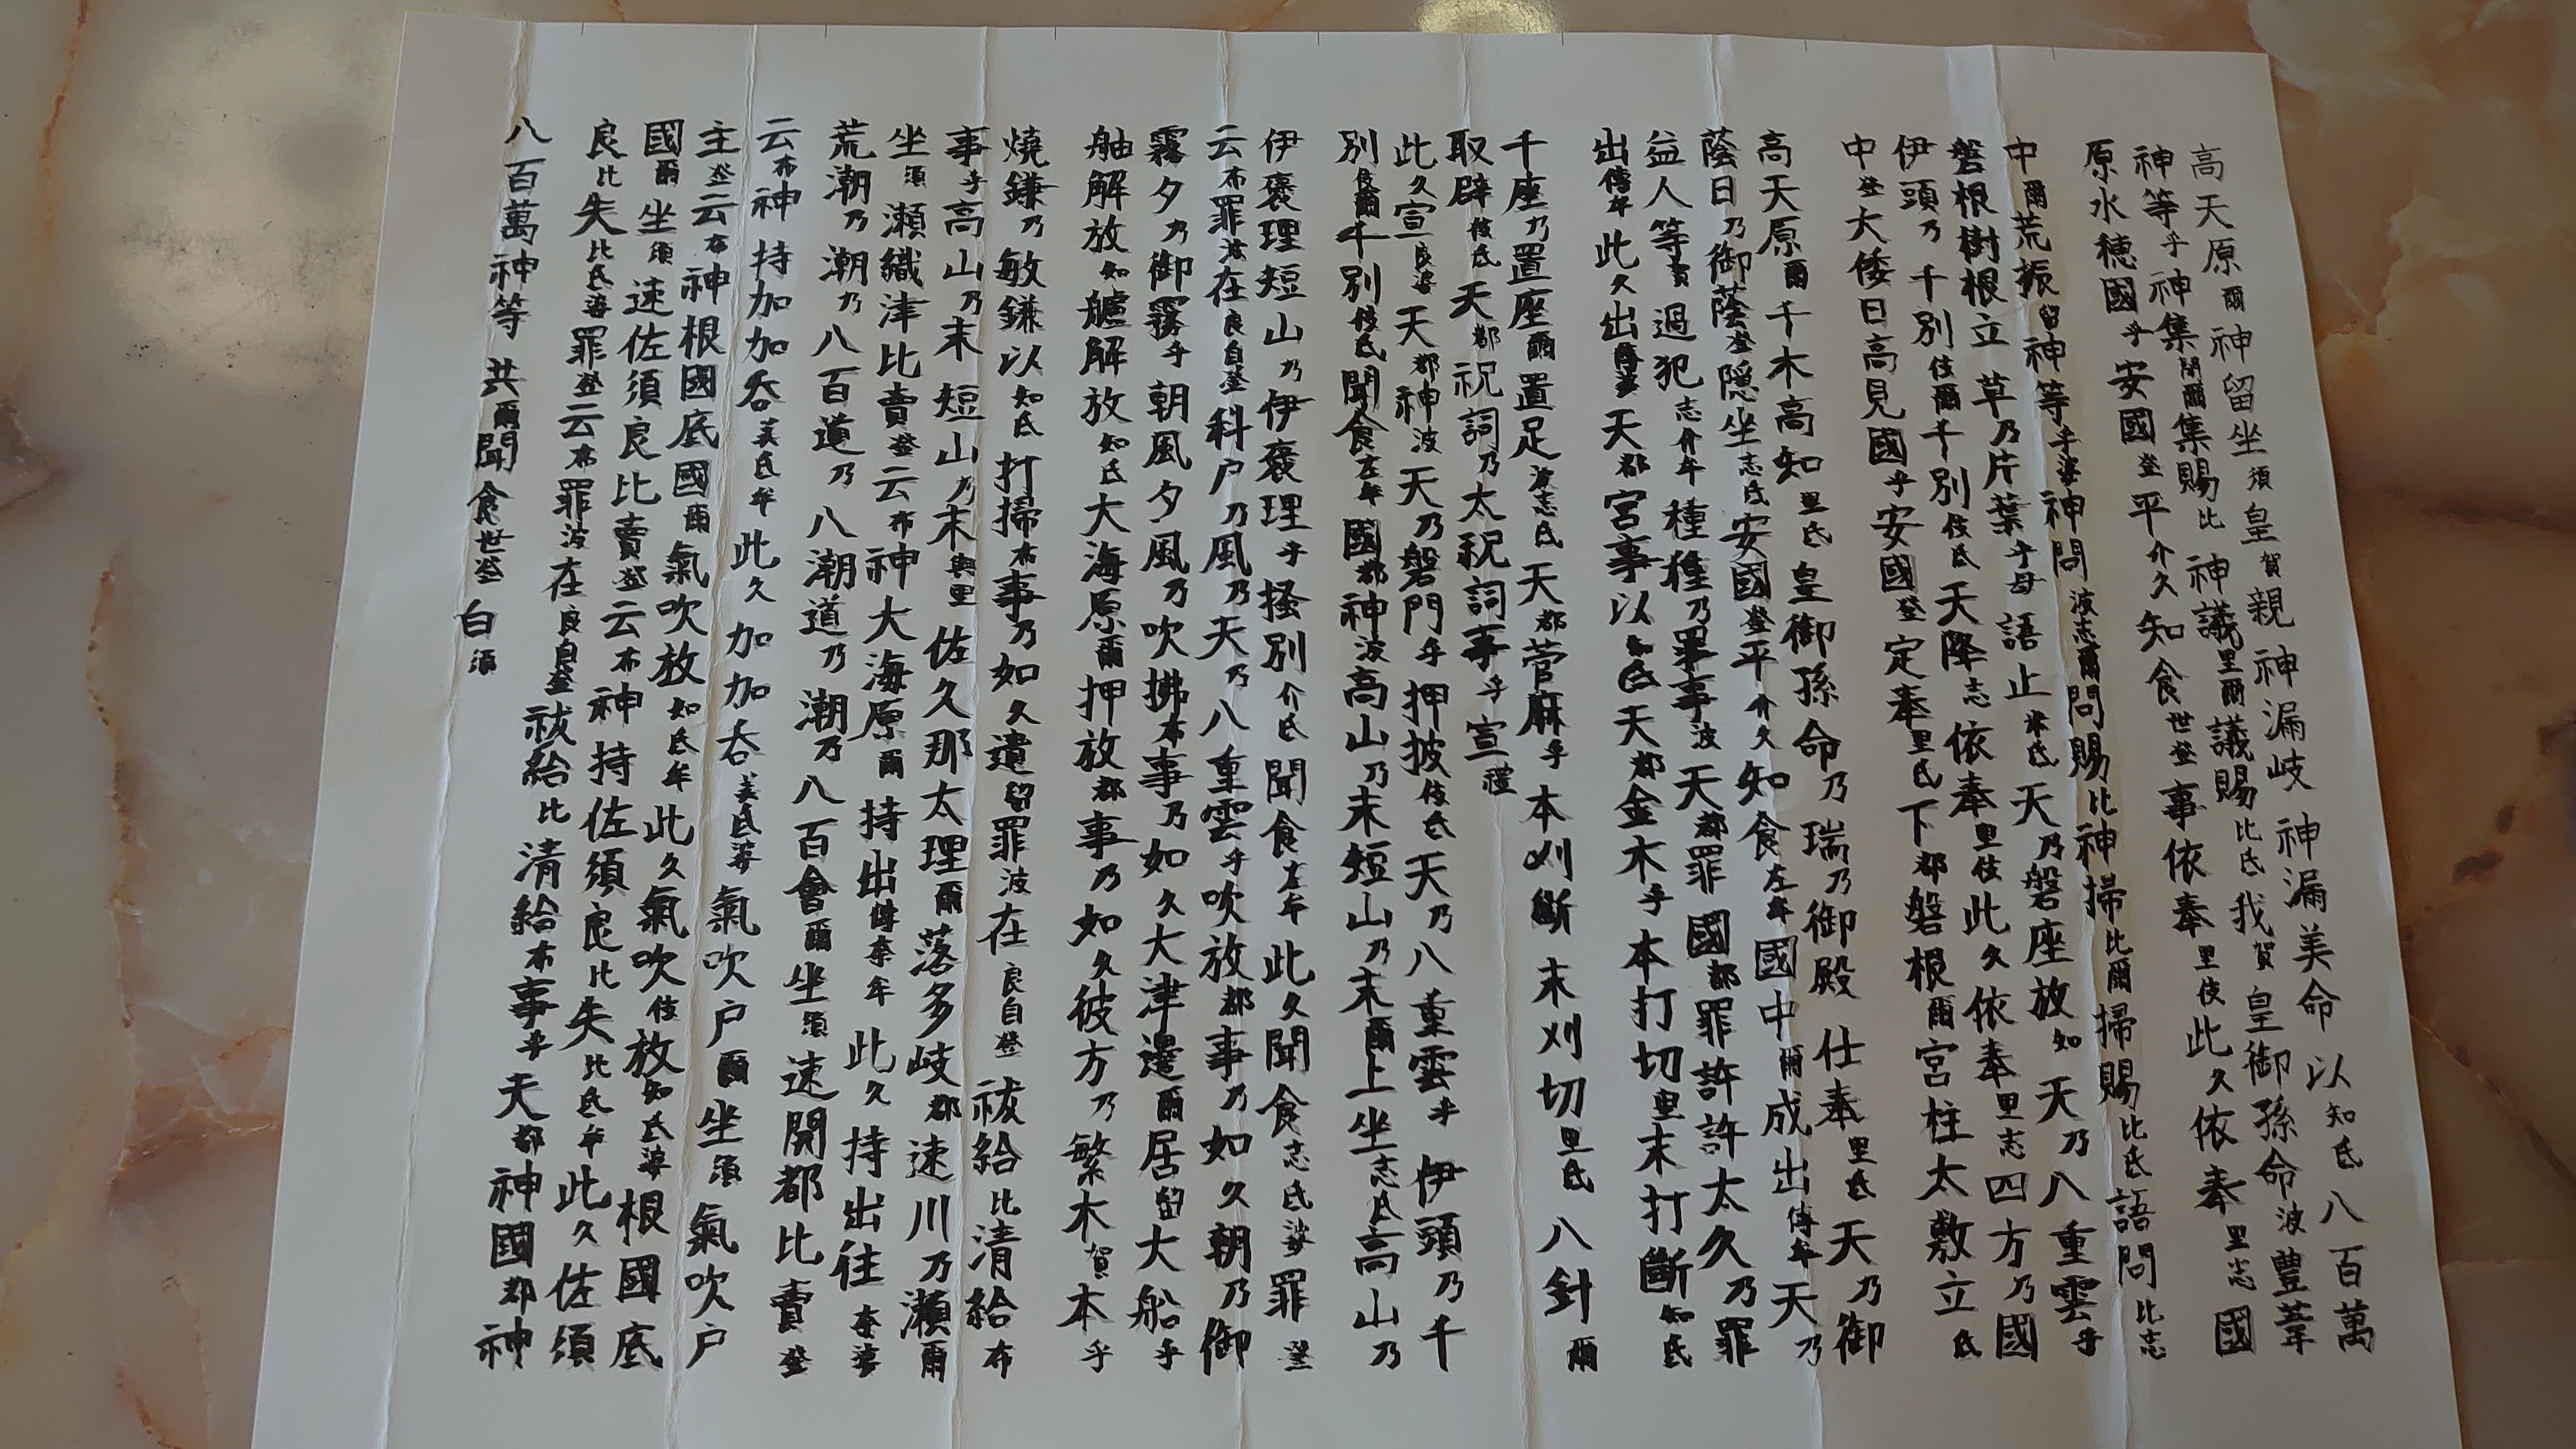 高天原爾神留坐須皇賀親神漏岐神漏美命以知氐八百萬
神等乎神集閇爾集賜比神議里爾議賜比氐我賀皇御孫命波豊葦
原水穂國乎安國登平介久知食世登事依奉里伎此久依奉里志國
中爾荒振留神等乎婆神問波志爾問賜比神掃比爾掃賜比氐語問比志
磐根樹根立草乃片葉乎母語止米氐天乃磐座放知天乃八重雲乎
伊頭乃千別伎爾千別伎氐天降志依奉里伎此久依奉里志四方乃國
中登大倭日高見國乎安國登定奉里氐下都磐根爾宮柱太敷立氐
高天原爾千木高知里氐皇御孫命乃瑞乃御殿仕奉里氐天乃御
蔭日乃御蔭登隠坐志氐安國登平介久知食左牟國中爾成出傳牟天乃
益人等賀過犯志介牟種種乃罪事波天都罪國都罪許許太久乃罪
出傳牟此久出傳婆天都宮事以知氐天都金木乎本打切里末打斷知氐
千座乃置座爾置足波志氐天都菅麻乎本刈斷末刈切里氐八針爾
取辟伎氐天都祝詞乃太祝詞事乎宣禮
此久宣良婆天都神波天乃磐門乎押披伎氐天乃八重雲乎伊頭乃千
別伎爾千別伎氐聞食左牟國都神波高山乃末短山乃末爾上坐志氐高山乃
伊褒理短山乃伊褒理乎掻別介氐聞食左牟此久聞食志氐婆罪登
云布罪波在良自登科戸乃風乃天乃八重雲乎吹放都事乃如久朝乃御
霧夕乃御霧乎朝風夕風乃吹拂布事乃如久大津邊爾居留大船乎
舳解放知艫解放知氐大海原爾押放都事乃如久彼方乃繁木賀本乎
燒鎌乃敏鎌以知氐打掃布事乃如久遺留罪波在良自登祓給比清給布
事乎高山乃末短山乃末與里佐久那太理爾落多岐都速川乃瀬爾
坐須瀬織津比賣登云布神大海原爾持出傳奈牟此久持出往奈婆
荒潮乃潮乃八百道乃八潮道乃潮乃八百會爾坐須速開都比賣登
云布神持加加呑美氐牟此久加加呑美氐婆氣吹戸爾坐須氣吹戸
主登云布神根國底國爾氣吹放知氐牟此久氣吹伎放知氐婆根國底
國爾坐須速佐須良比賣登云布神持佐須良比失比氐牟此久佐須
良比失比氐婆罪登云布罪波在良自登祓給比清給布事乎天都神國都神
八百萬神等共爾聞食世登白須